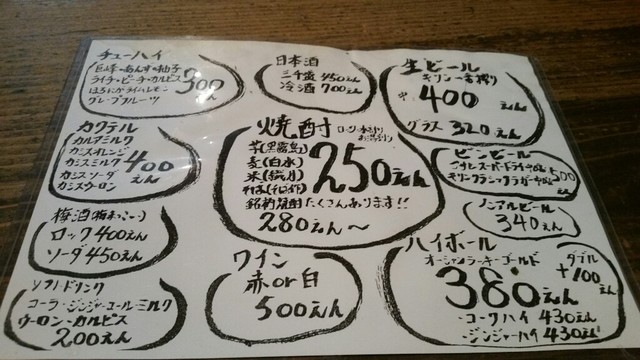 チューハイ
巨峰・あんず・柚子
ライチ・ピーチ・カルピス
はちにがライム・レモン
グレープフルーツ
300えん
日本酒
三千盛 450えん
冷酒 700えん
生ビール
キリン一番搾り
中 400えん
グラス 320えん
カクテル
カルアミルク
カシスオレンジ
カシスミルク
カシスソーダ
カシスウーロン
400えん
焼酎
ロック・水割り
お湯割り
芋(黒霧島)
麦(白水)
米(織月)
250えん
銘柄焼酎たくさんあります!!
280えん〜
ビンビール
アサヒスーパードライ中瓶
キリンクラシックラガー中瓶
500えん
ノンアルビール
340えん
梅酒(梅まっこい)
ロック 400えん
ソーダ 450えん
ワイン
赤or白
500えん
ハイボール
オーシャンラッキーゴールド
380えん
ダブル
+100えん
・コークハイ 430えん
・ジンジャーハイ 430えん
ソフトドリンク
コーラ・ジンジャーエール・ミルク
ウーロン・カルピス
200えん